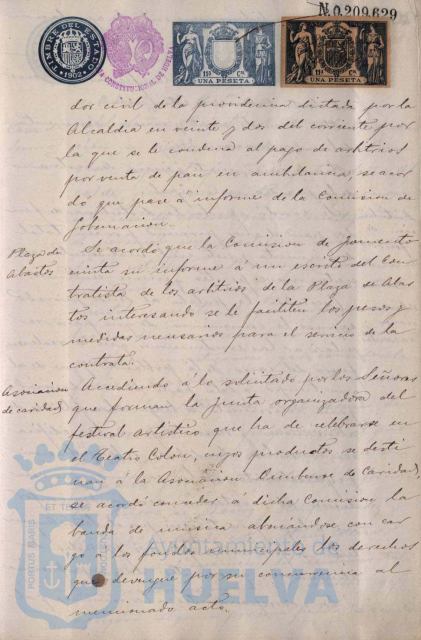 N.0.209.629
TIMBRE DEL ESTADO
1902
CONSTITUCIONAL DE HUELVA
11ª Cª
UNA PESETA
11ª Cª
UNA PESETA
dor civil de la providencia dictada por la
Alcaldia en veinte y dos del corriente por
la que se le condena al pago de arbitrios
por venta de pan en ambulancia, se acor
dó que pase á informe de la Comision de
Gobernacion.
Plaza de
Abastos
Se acordó que la Comision de Fomento
emita su informe á un escrito del Con
tratista de los arbitrios de la Plaza de Abas
tos interesando se le faciliten los pesos y
medidas necesarios para el servicio de la
contrata.
Asociacion
de caridad
Accediendo á lo solicitado por los Señores
que forman la Junta organizadora del
festival artistico que ha de celebrarse en
el Teatro Colon, cuyos productos se desti
nan á la Asociacion Onubense de Caridad,
se acordó conceder á dicha Comision la
banda de musica abonandose con car
go á los fondos municipales los derechos
que devengue por su concurrencia al
mencionado acto.
PORTUS MARIS
ET TERRAE
Ayuntamiento de
HUELVA